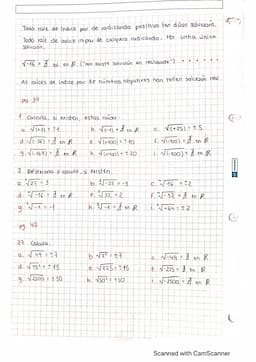 Toda raíz de índice par de radicando positivo ten dúas solucións.
Toda raíz de índice impar de calquera radicando, ten unha única
solución.
√-16 = ∄ sol en R ("non existe solución en
As raíces de índice par de números negativos non teñen solución real.
px 39
1 Calcula, si existen, estas raíces
a. √(+1) = ±1 b. √(-1) = ∄ en R c. √(+25) = ±5
d. √(-36) = ∄ en R e. √(+100) = ±10 f. √(-100) = ∄ en R
g. = ∄ en R h. √(+400) = ±20 i. = ∄ en R
2 e calcula, si existen.
a. = 3 b. = -3 c. = ±2
d. = ∄ en R e. = 2 f. = ∄ en R
g. = -1 h. = ∄ en R i. = ±2
px 43
27 Calcula.
a. √49 = ±7 b. √7² = ±7 c. √-49 = ∄ en R
d. √15² = ±15 e. √225 = ±15 f. √-225 = ∄ en R
g. √2500 = ±50 h. √50² = ±50 i. √-2500 = ∄ en R
Scanned with CamScanner